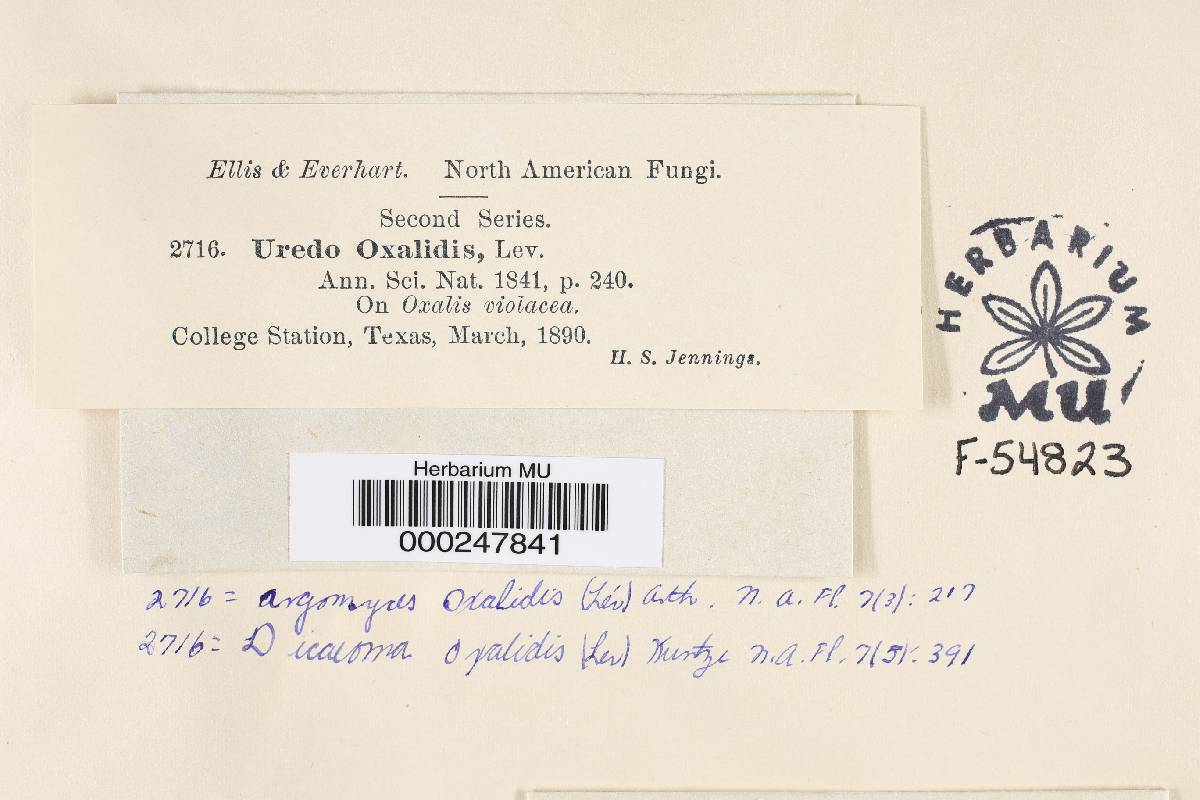 Ellis & Everhart. North American Fungi.
Second Series.
2716. Uredo Oxalidis, Lev.
Ann. Sci. Nat. 1841, p. 240.
On Oxalis violacea.
College Station, Texas, March, 1890.
H. S. Jennings.
HERBARIUM
MU
F-54823
Herbarium MU
000247841
2716 = argomyces oxalidis (Lév) Arth. N. A. Fl. 7(3): 217
2716 = Dicaeoma oxalidis (Lev) Kuntze N.A. Fl. 7(5): 391